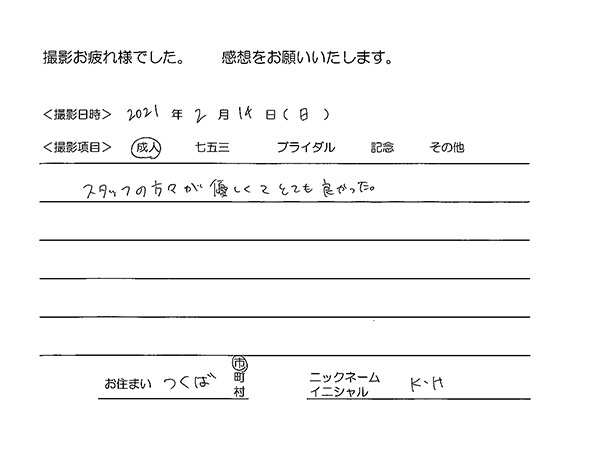 撮影お疲れ様でした。 感想をお願いいたします。
＜撮影日時＞ 2021 年 2 月 14 日 ( 日 )
＜撮影項目＞ 成人 七五三 ブライダル 記念 その他
スタッフの方々が優しくてとても良かった。
お住まい つくば 市 町 村 ニックネーム イニシャル K・H